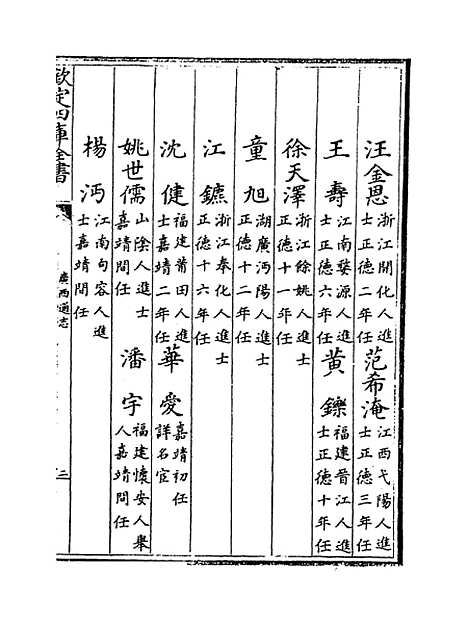 汪金恩浙江開化人進士正德二年任 范希淹江西弋陽人進士正德三年任
王壽江南婺源人進士正德六年任 黄鑠福建晉江人進士正德十年任
徐天澤浙江餘姚人進士正德十一年任
童旭湖廣沔陽人進士正德十二年任
江鑣浙江奉化人進士正德十六年任
沈健福建莆田人進士嘉靖二年任 華愛嘉靖初任詳名宦
姚世儒山隂人進士嘉靖間任 潘宇福建懷安人舉人嘉靖間任
楊沔江南句容人進士嘉靖間任
欽定四庫全書 廣西通志 三